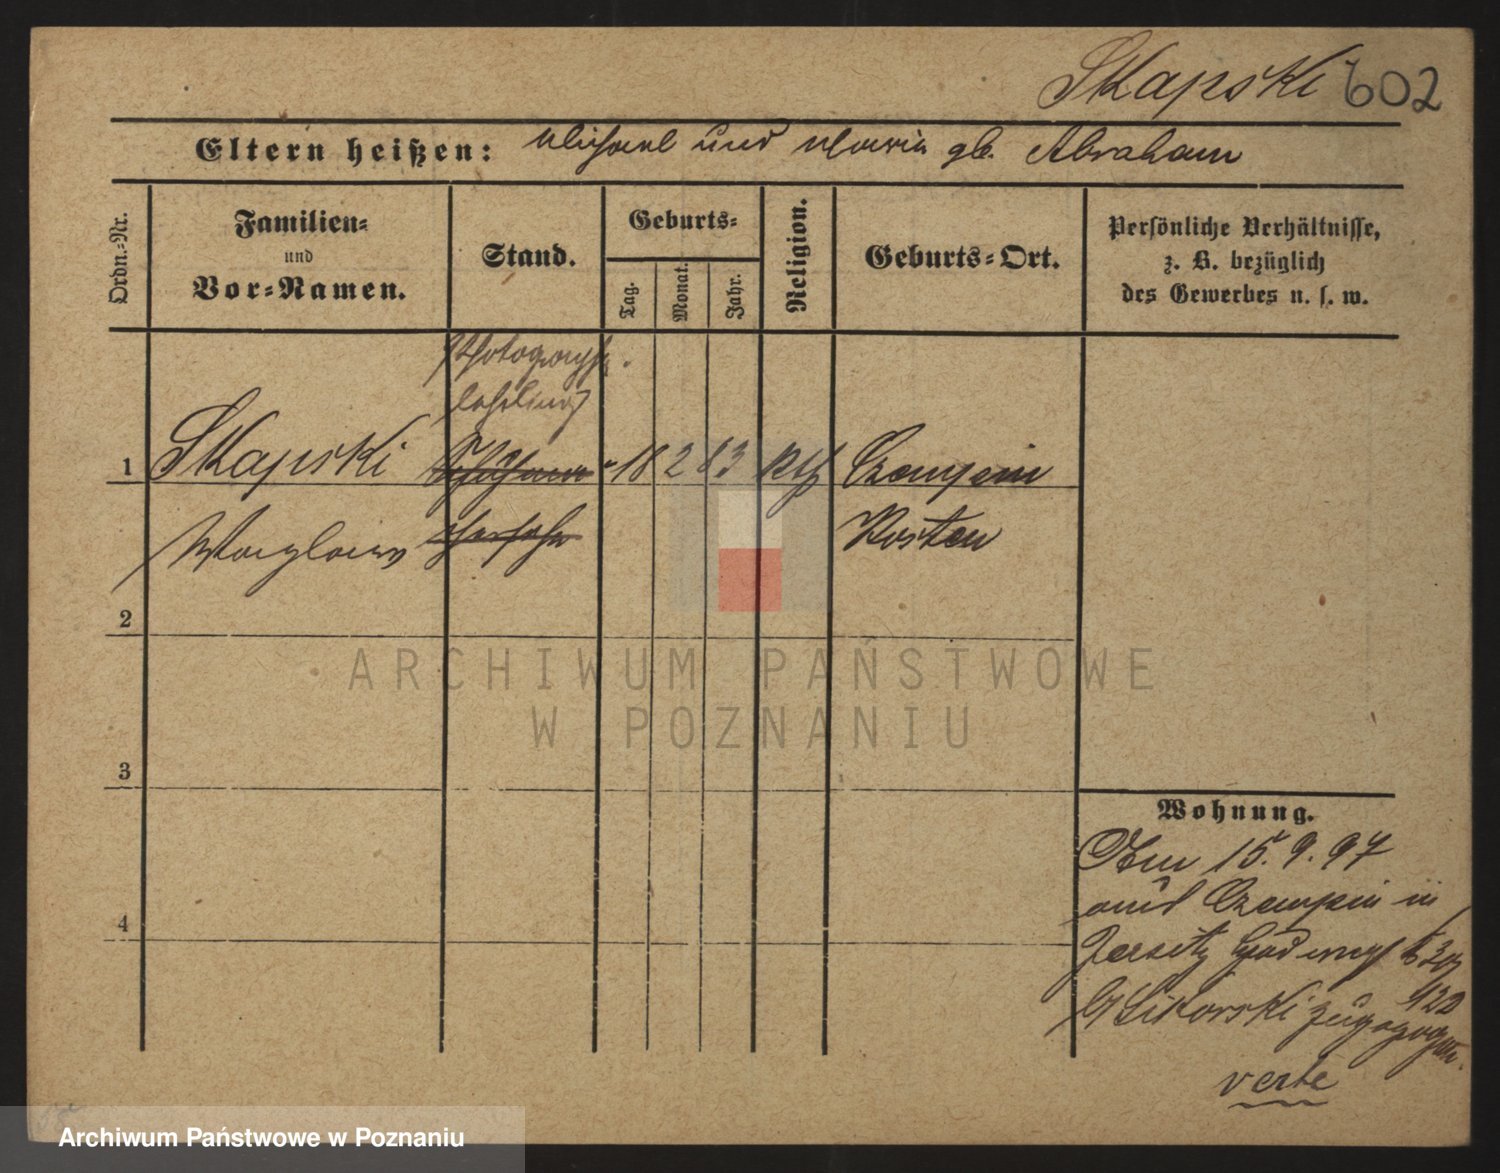 Skapski 602
Eltern heißen: Michael und Maria gb. Abraham
Ordn.-Nr.
Familien-
und
Vor-Namen.
Stand.
Geburts-
Tag.
Monat.
Jahr.
Religion.
Geburts-Ort.
Persönliche Verhältnisse,
z. B. bezüglich
des Gewerbes u. s. w.
Photograph
lehrling
1 Skapski 18 2 83 kth Czempin
Kosten
2
ARCHIWUM PAŃSTWOWE
W POZNANIU
3
Wohnung.
15. 9. 97
aus Czempin in
4
Jersitz
Sikorski zugezogen.
verte
Archiwum Państwowe w Poznaniu